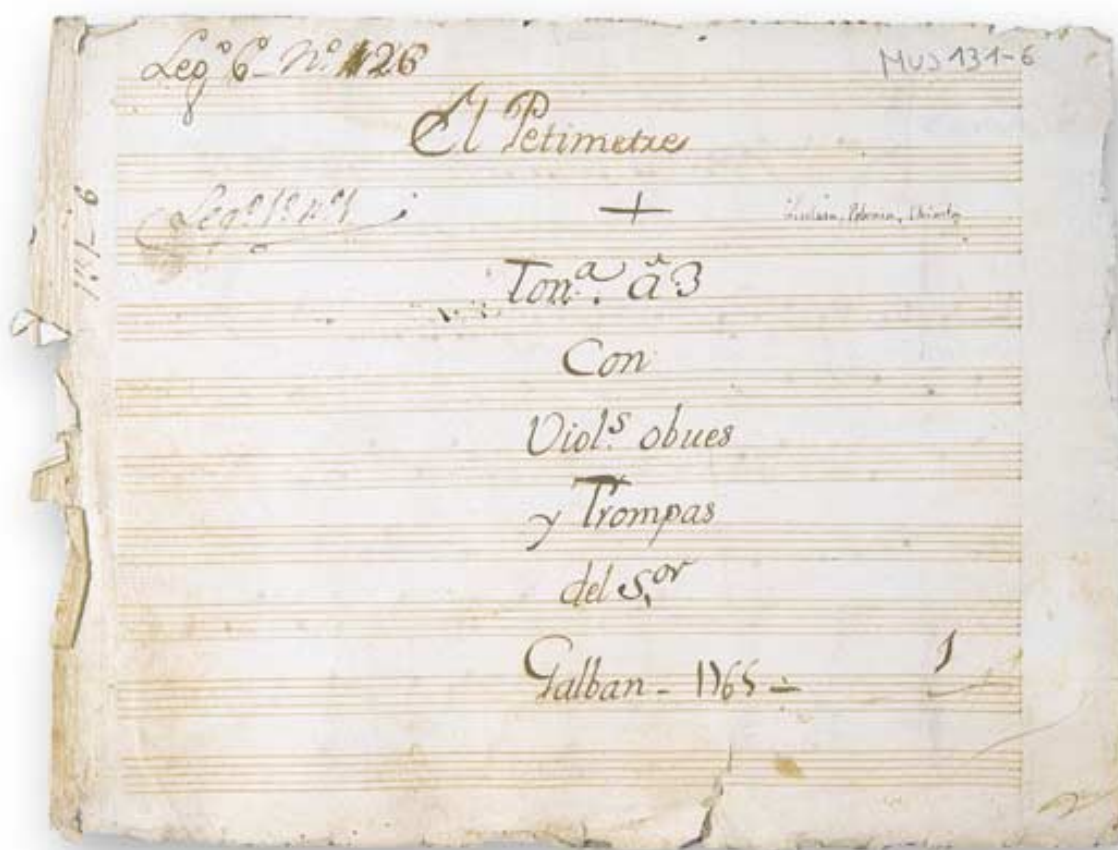 Leg.º 6.º Nº 126
MUS 131-6
El Petimetre
Leg.º 1.º nº 1
+
131-6
Ton.ª â 3
Con
Viol.s obues
y Trompas
del S.or
Galban - 1765
1